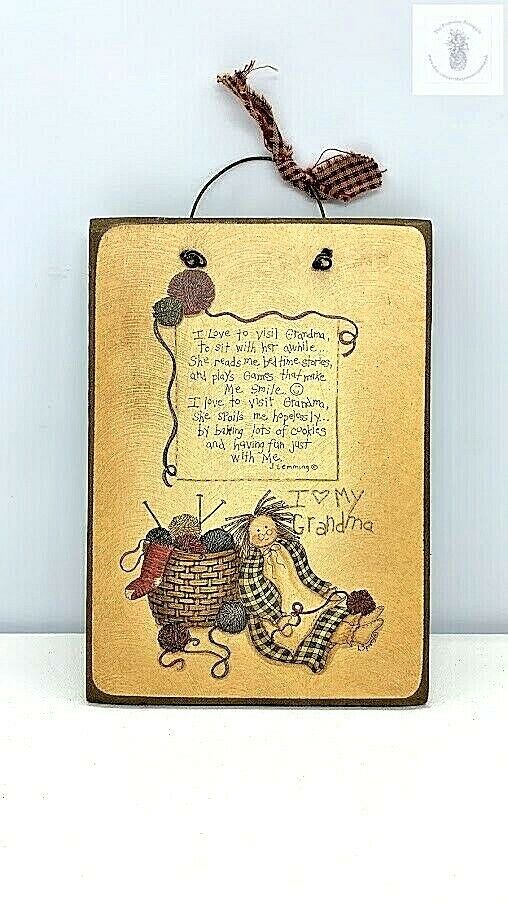 I Love to visit Grandma,
to sit with her awhile..
She reads me bedtime stories,
and plays Games that make
Me Smile..
I love to visit Grandma,
she spoils me hopelessly..
by baking lots of cookies
and having fun just
with Me.
J Lemming ©
I ♡ My
Grandma